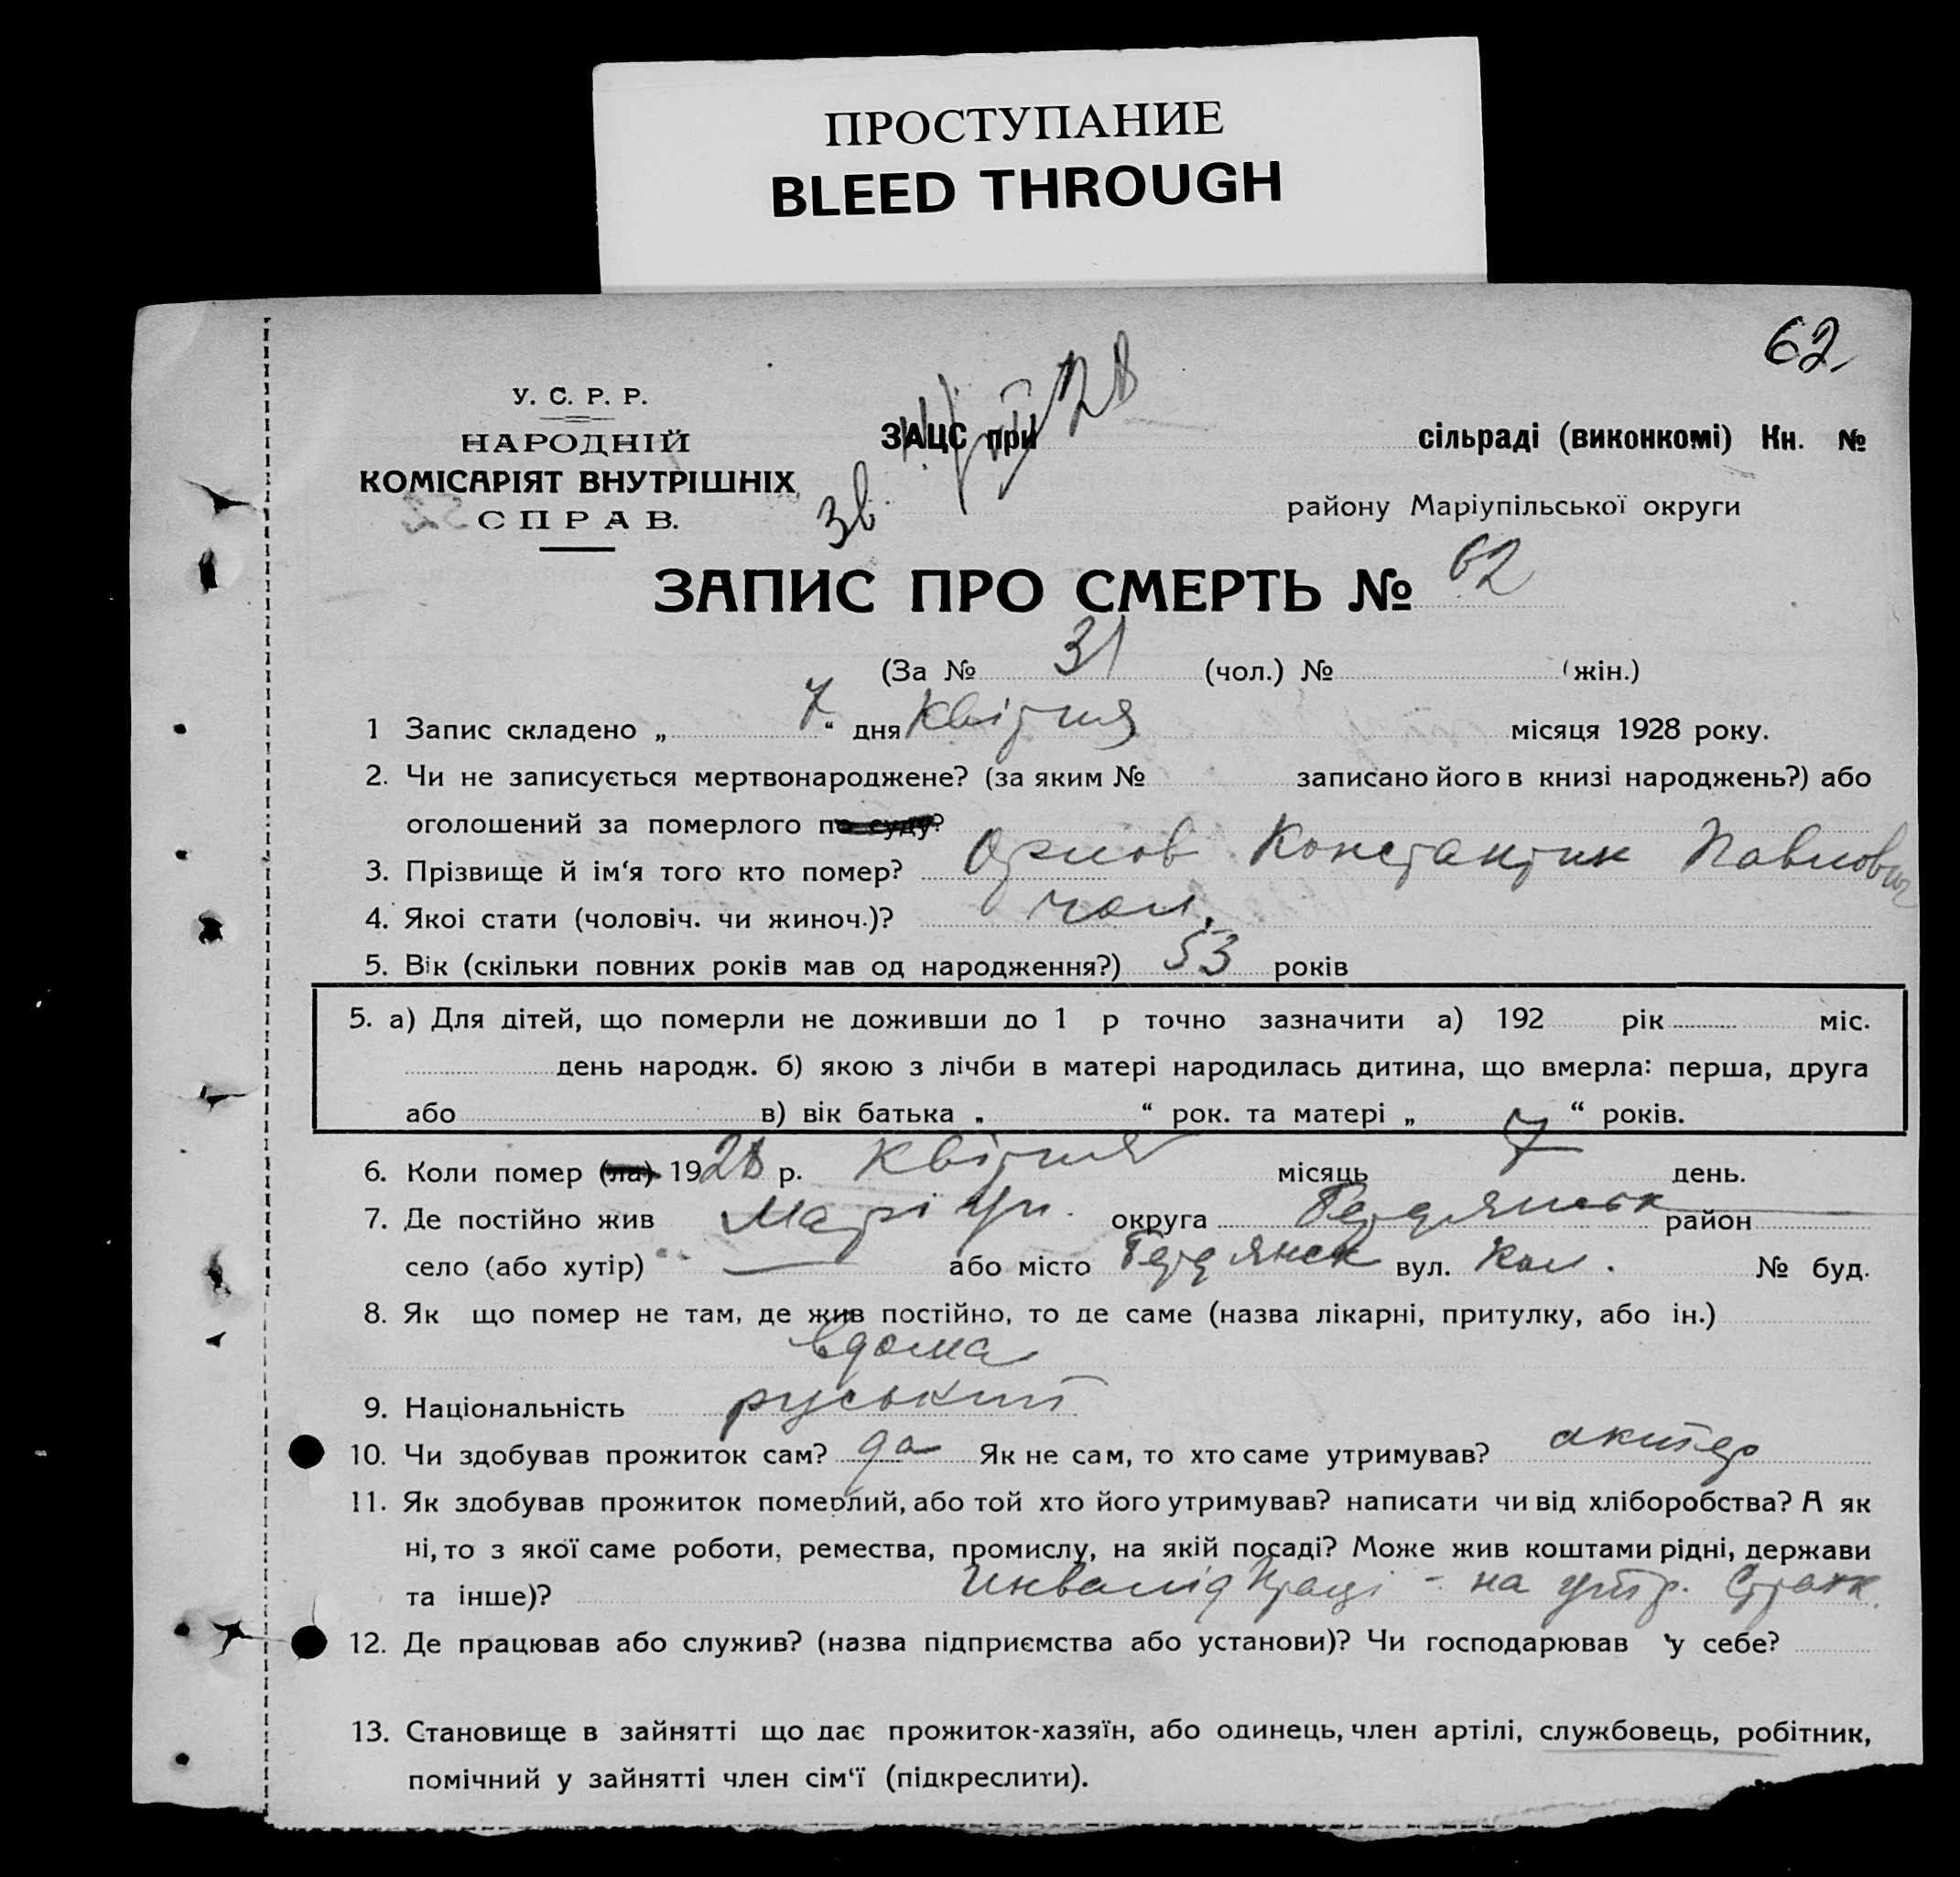 ПРОСТУПАНИЕ
BLEED THROUGH
62
У. С. Р. Р.
НАРОДНІЙ
КОМІСАРІЯТ ВНУТРІШНІХ
СПРАВ.
ЗАЦС при сільраді (виконкомі) Кн. №
району Маріупільської округи
Зв. 28
ЗАПИС ПРО СМЕРТЬ № 62
(За № 31 (чол.) № (жін.)
1 Запис складено „ 7 “ дня Квітня місяця 1928 року.
2. Чи не записується мертвонароджене? (за яким № записано його в книзі народжень?) або
оголошений за померлого по суду?
3. Прізвище й ім‘я того кто помер? Орлов Константин Павлович
4. Якоі стати (чоловіч. чи жиноч.)? чол.
5. Вік (скільки повних років мав од народження?) 53 років
5. а) Для дітей, що померли не доживши до 1 р точно зазначити а) 192 рік міс.
день народж. б) якою з лічби в матері народилась дитина, що вмерла: перша, друга
або в) вік батька „ “ рок. та матері „ “ років.
6. Коли помер (ла) 1928 р. Квітня місяць 7 день.
7. Де постійно жив Маріуп. округа Бердянськ район
село (або хутір) — або місто Бердянск вул. Кол. № буд.
8. Як що помер не там, де жив постійно, то де саме (назва лікарні, притулку, або ін.)
вдома
9. Національність руський
10. Чи здобував прожиток сам? да Як не сам, то хто саме утримував? актер
11. Як здобував прожиток померлий, або той хто його утримував? написати чи від хліборобства? А як
ні, то з якої саме роботи, ремества, промислу, на якій посаді? Може жив коштами рідні, держави
та інше)? Инвалід Праці - на утр. Страхк.
12. Де працював або служив? (назва підприємства або установи)? Чи господарював у себе?
13. Становище в зайнятті що дає прожиток-хазяїн, або одинець, член артілі, службовець, робітник,
помічний у зайнятті член сім‘ї (підкреслити).